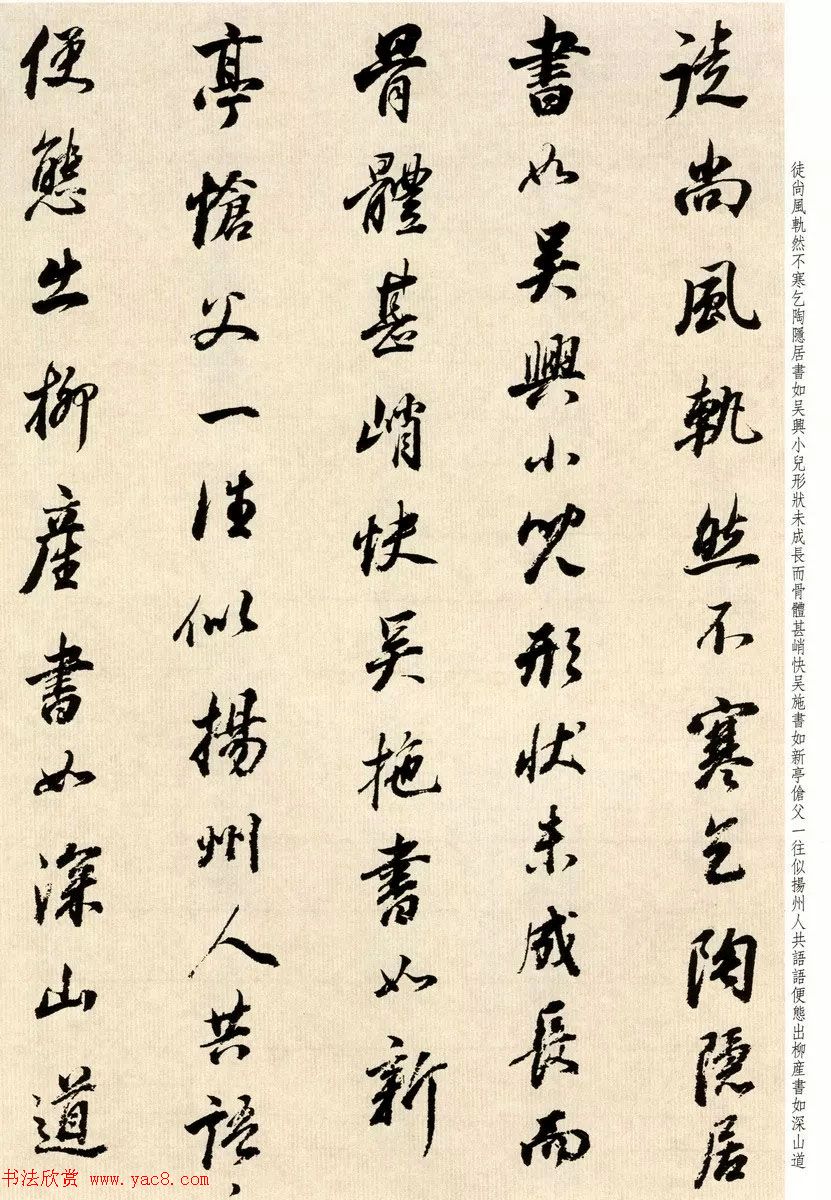 徒尚風軌然不寒乞陶隱居
書如吴興小兒形狀未成長而
骨體甚峭快吴拖書如新
亭愴父一往似揚州人共語〻
便態出柳産書如深山道
徒尚風軌然不寒乞陶隱居書如吴興小兒形狀未成長而骨體甚峭快吴施書如新亭傖父一往似揚州人共語語便態出柳産書如深山道
书法欣赏 www.yac8.com